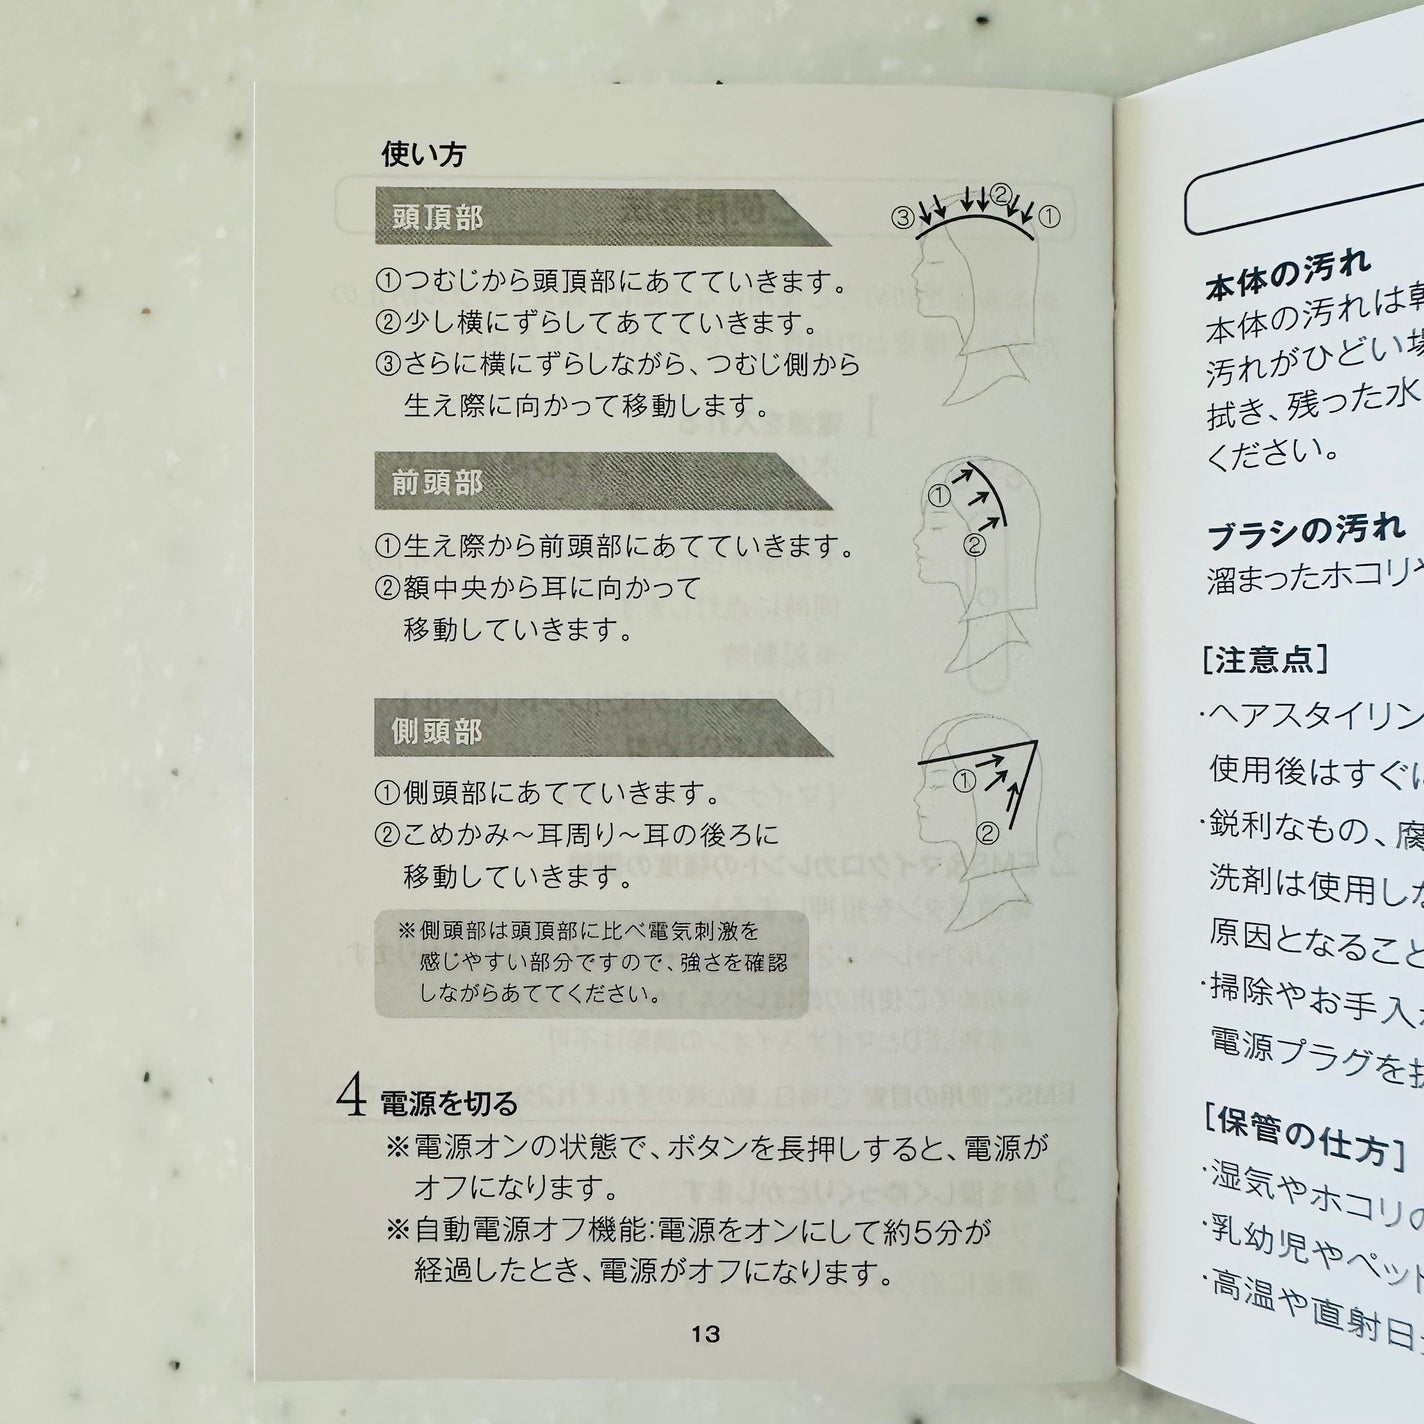 使い方
頭頂部
①つむじから頭頂部にあてていきます。
②少し横にずらしてあてていきます。
③さらに横にずらしながら、つむじ側から
生え際に向かって移動します。
③ ② ①
前頭部
①生え際から前頭部にあてていきます。
②額中央から耳に向かって
移動していきます。
①
②
側頭部
①側頭部にあてていきます。
②こめかみ～耳周り～耳の後ろに
移動していきます。
①
②
※側頭部は頭頂部に比べ電気刺激を
感じやすい部分ですので、強さを確認
しながらあててください。
4 電源を切る
※電源オンの状態で、ボタンを長押しすると、電源が
オフになります。
※自動電源オフ機能:電源をオンにして約5分が
経過したとき、電源がオフになります。
13
本体の汚れ
本体の汚れは
汚れがひどい場
拭き、残った水
ください。
ブラシの汚れ
溜まったホコリや
[注意点]
・ヘアスタイリン
使用後はすぐに
・鋭利なもの、腐
洗剤は使用しな
原因となること
・掃除やお手入
電源プラグを
[保管の仕方]
・湿気やホコリの
・乳幼児やペット
・高温や直射日